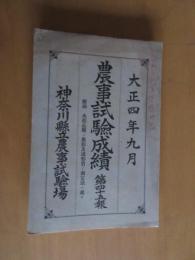 大正四年九月
農事試驗成績 第四十五報
神奈川縣立農事試驗場